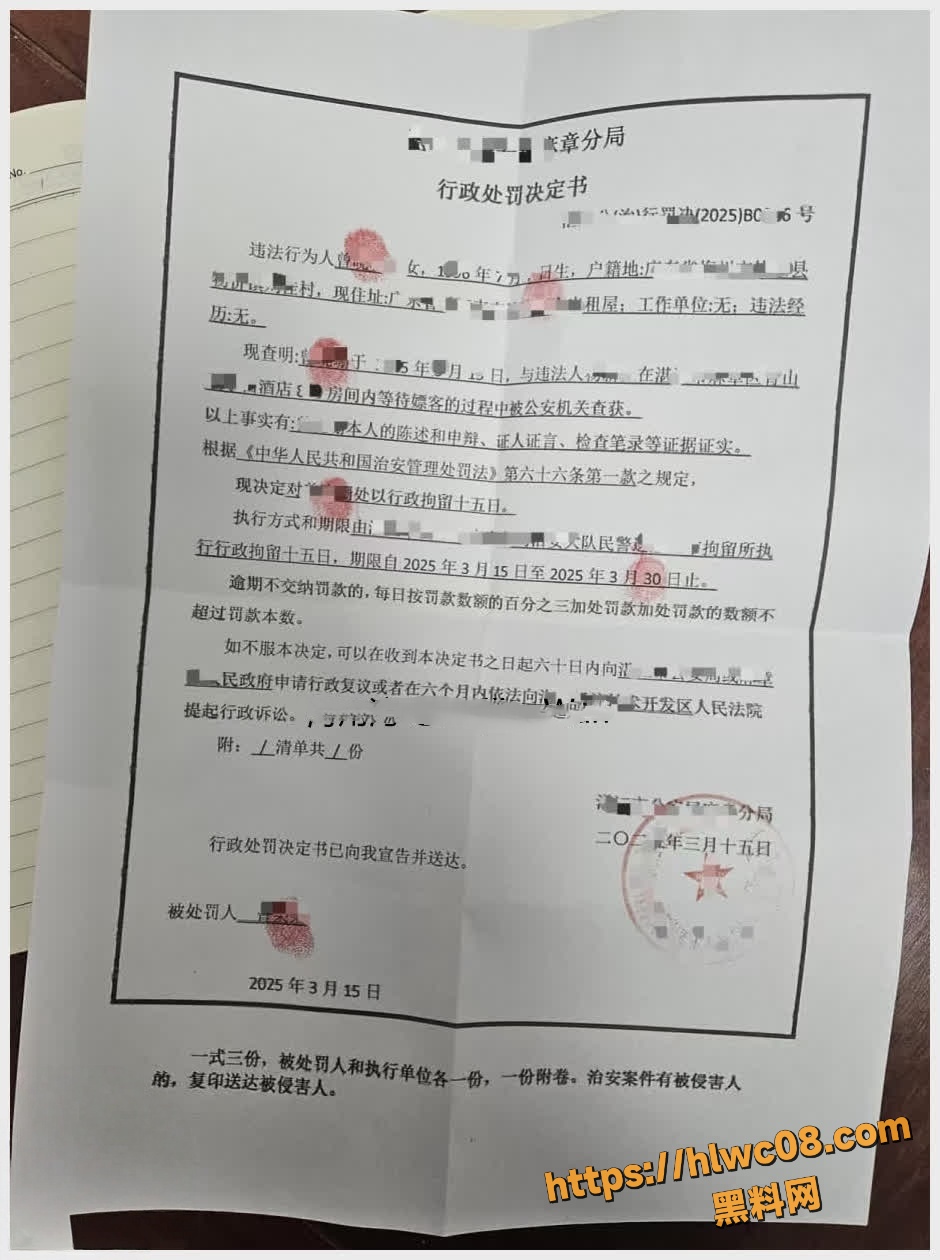 No.
章分局
行政处罚决定书
行罚决(2025)B0 6 号
违法行为人曾 女， 年 月 日生，户籍地:广 县
村，现住址:广东省 租屋；工作单位:无；违法经
历:无。
现查明: 于 5 年 月 15 日，与违法人 在湛 山
酒店 8 房间内等待嫖客的过程中被公安机关查获。
以上事实有: 本人的陈述和申辩、证人证言、检查笔录等证据证实。
根据《中华人民共和国治安管理处罚法》第六十六条第一款之规定，
现决定对 处以行政拘留十五日。
执行方式和期限由 大队民警 拘留所执
行行政拘留十五日，期限自 2025 年 3 月 15 日至 2025 年 3 月 30 日止。
逾期不交纳罚款的，每日按罚款数额的百分之三加处罚款加处罚款的数额不
超过罚款本数。
如不服本决定，可以在收到本决定书之日起六十日内向
人民政府申请行政复议或者在六个月内依法向 术开发区人民法院
提起行政诉讼。
附：/清单共/份
分局
二〇二 年三月十五日
行政处罚决定书已向我宣告并送达。
被处罚人
2025 年 3 月 15 日
一式三份，被处罚人和执行单位各一份，一份附卷。治安案件有被侵害人
的，复印送达被侵害人。
https://hlwc08.com
黑料网